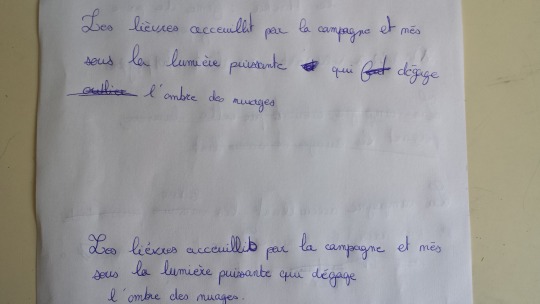 Les lièvres acceuillit par la campagne et més
sous la lumière puissante qui dégage
l'ombre des nuages
Les liévres acceuillit par la campagne et més
sous la lumière puissante qui dégage
l'ombre des nuages.